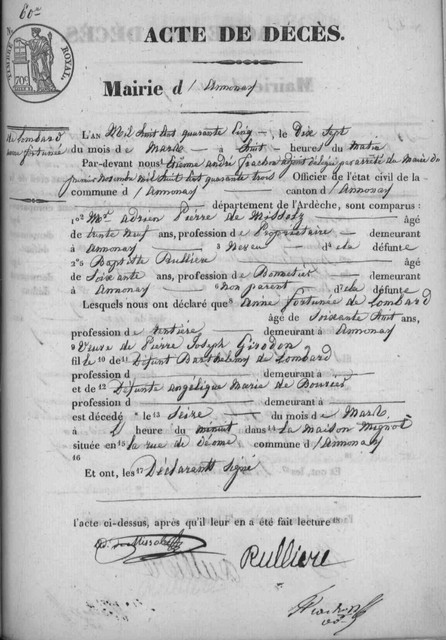 60e
TIMBRE ROYAL
70c
ACTE DE DÉCÈS.
Mairie d'Annonay
de Lombard
anne fortunée
L'AN Mil huit cent quarante Cinq, le Dix sept
du mois de Mars à huit heures du matin
Par-devant nous Etienne andré adjoint délégué par arrêté du Maire du
mil huit cent quarante trois Officier de l'état civil de la
commune d'annonay canton d'annonay
département de l'Ardèche, sont comparus :
1° 2 Mr adrien Pierre de Missolz âgé
de trente Neuf ans, profession de Propriétaire demeurant
à annonay 3 Neveu d4 ela défunte
2° 5 Baptiste Rullière âgé
de Soixante ans, profession de Bonnetier demeurant
à annonay 6 non parent d7 ela défunte
Lesquels nous ont déclaré que 8 anne fortunée de Lombard
âgé de Soixante huit ans,
profession de rentière demeurant à annonay
9 Veuve de Pierre Joseph Girodon
fille 10 de 11 Défunt Barthélemy de Lombard
profession d demeurant à
et de 12 Défunte angélique Marie de
profession d demeurant à
est décédé e le 13 Seize du mois de Mars
à heure du minuit dans 14 la maison Mignot
située en 15 la rue de Déome commune d'annonay
16
Et ont, les 17 Déclarants signé
l'acte ci-dessus, après qu'il leur en a été fait lecture 18
Rulliere